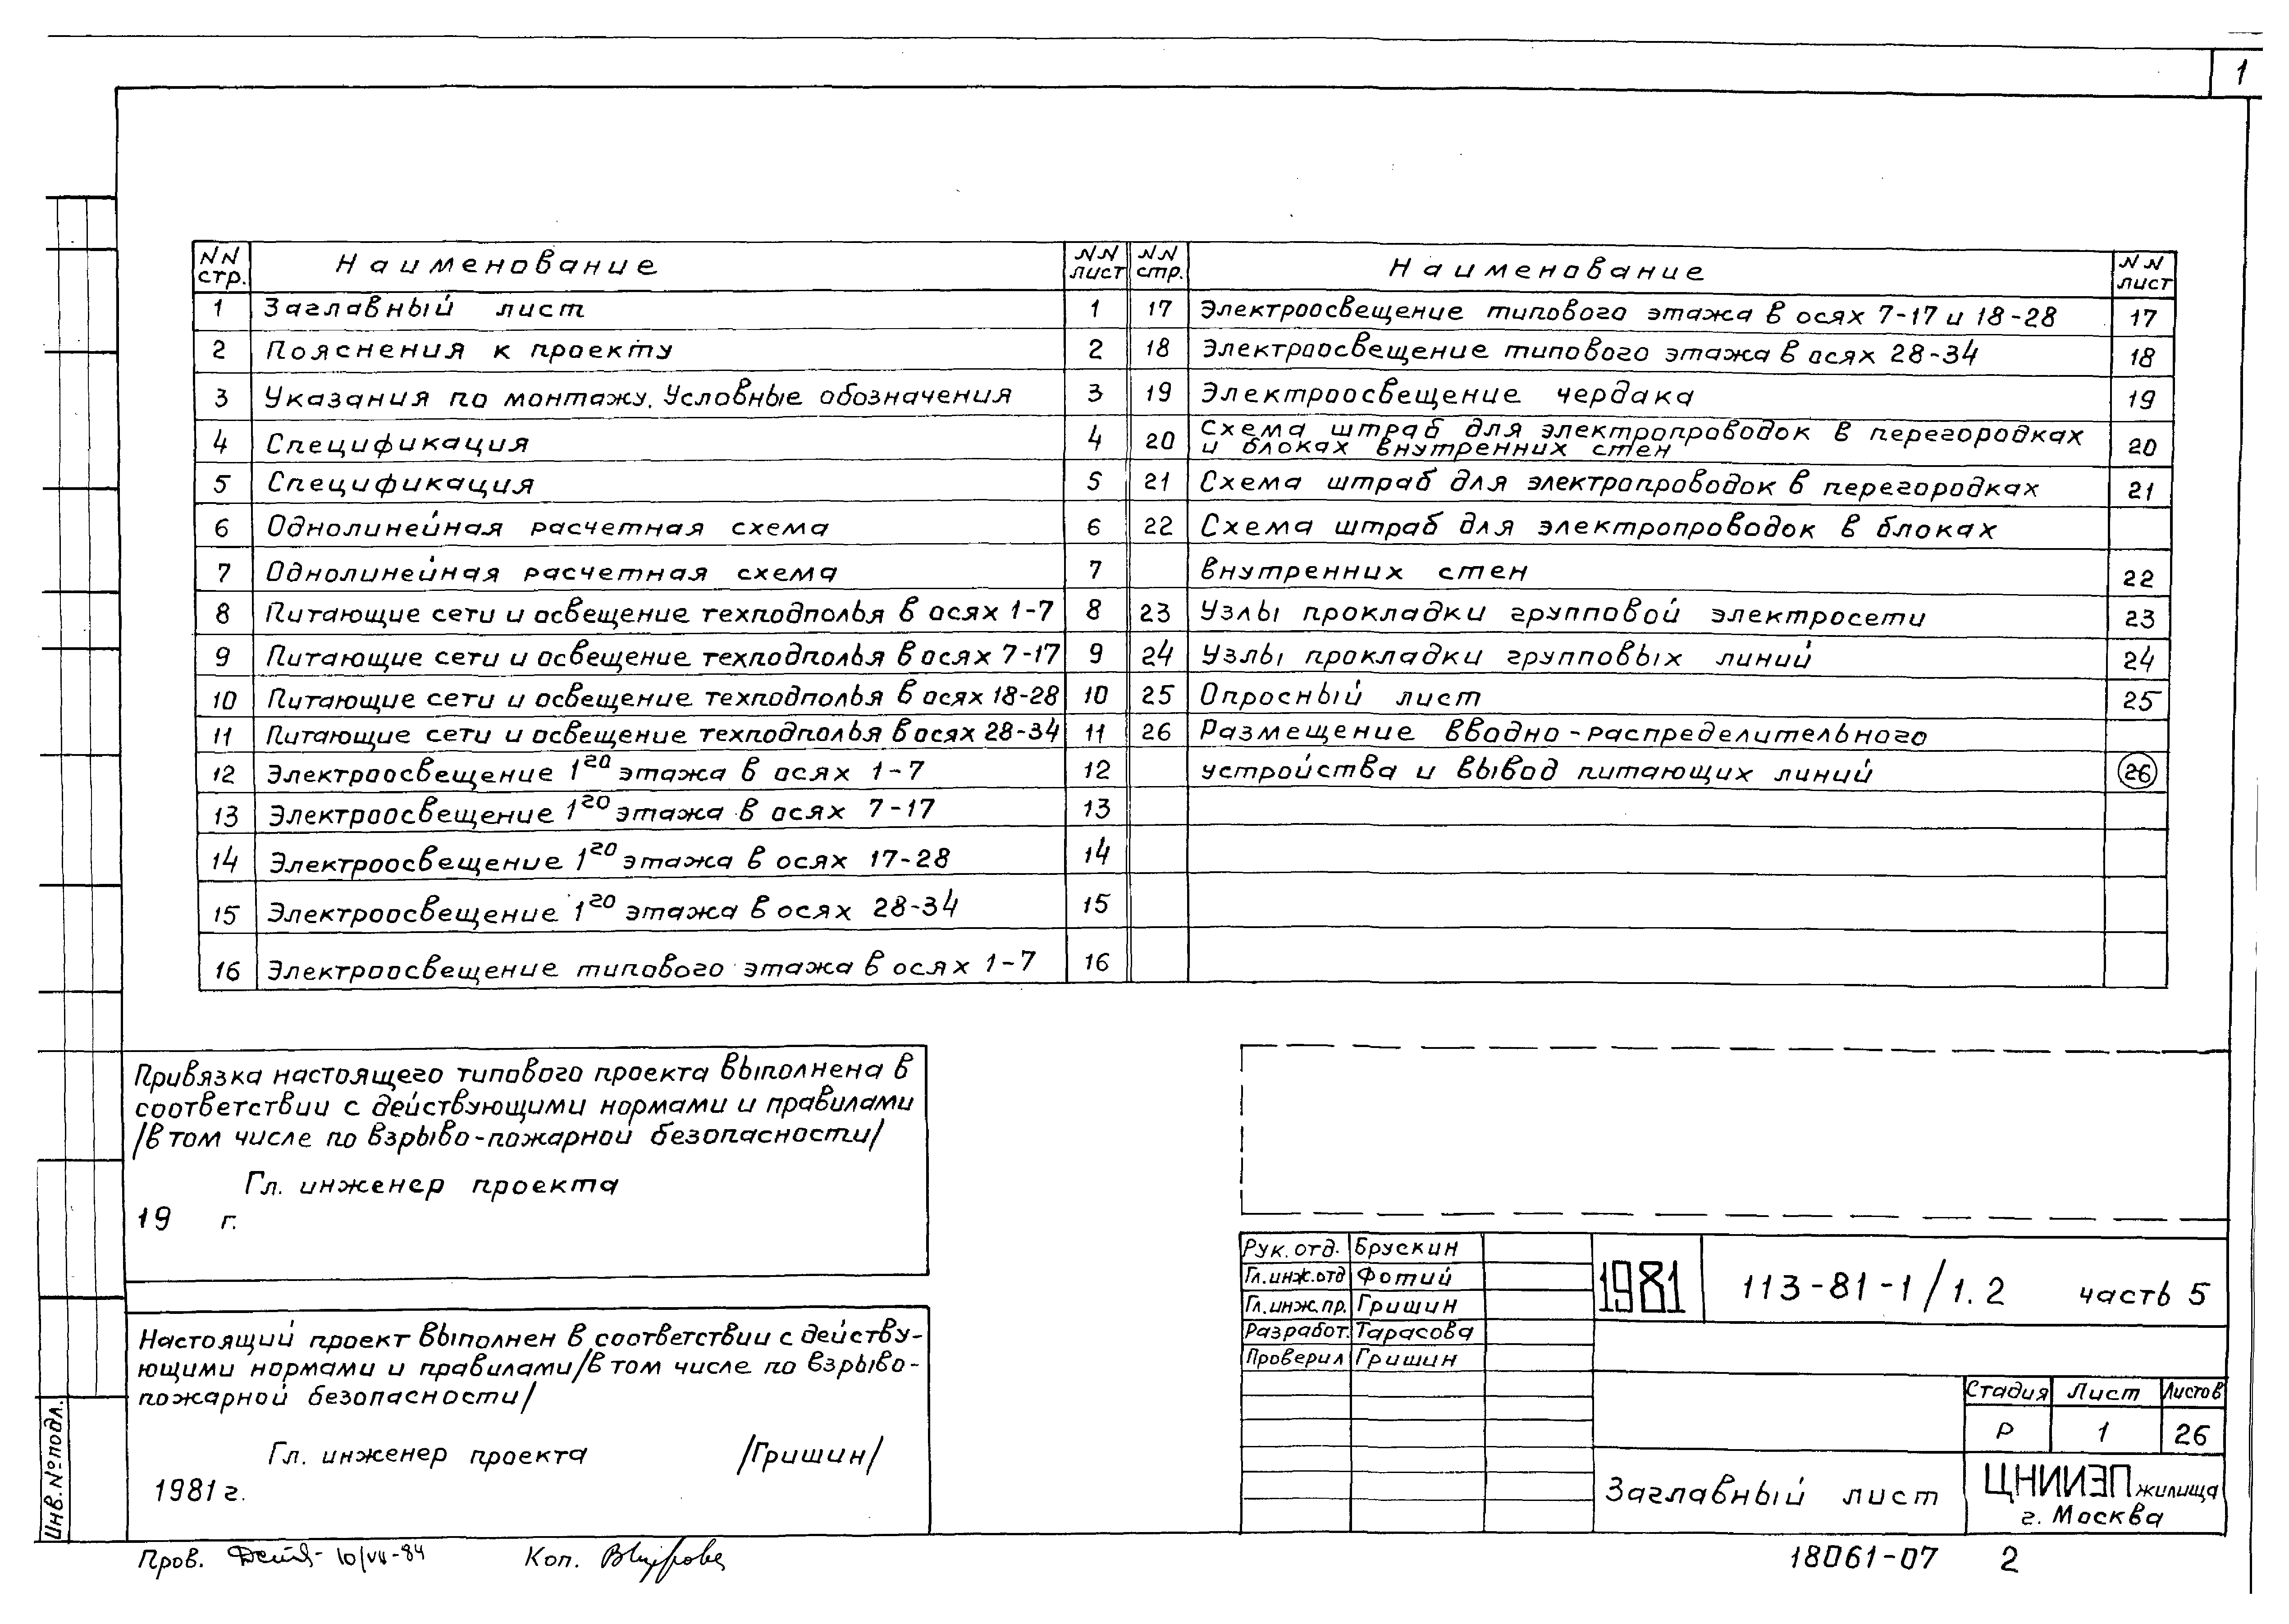 1
NN стр. Наименование NN лист
1 Заглавный лист 1
2 Пояснения к проекту 2
3 Указания по монтажу. Условные обозначения 3
4 Спецификация 4
5 Спецификация 5
6 Однолинейная расчетная схема 6
7 Однолинейная расчетная схема 7
8 Питающие сети и освещение техподполья в осях 1-7 8
9 Питающие сети и освещение техподполья в осях 7-17 9
10 Питающие сети и освещение техподполья в осях 18-28 10
11 Питающие сети и освещение техподполья в осях 28-34 11
12 Электроосвещение 1го этажа в осях 1-7 12
13 Электроосвещение 1го этажа в осях 7-17 13
14 Электроосвещение 1го этажа в осях 17-28 14
15 Электроосвещение 1го этажа в осях 28-34 15
16 Электроосвещение типового этажа в осях 1-7 16
NN стр. Наименование NN лист
17 Электроосвещение типового этажа в осях 7-17 и 18-28 17
18 Электроосвещение типового этажа в осях 28-34 18
19 Электроосвещение чердака 19
20 Схема штраб для электропроводок в перегородках
и блоках внутренних стен 20
21 Схема штраб для электропроводок в перегородках 21
22 Схема штраб для электропроводок в блоках
внутренних стен 22
23 Узлы прокладки групповой электросети 23
24 Узлы прокладки групповых линий 24
25 Опросный лист 25
26 Размещение вводно-распределительного
устройства и вывод питающих линий 26
Привязка настоящего типового проекта выполнена в
соответствии с действующими нормами и правилами
/в том числе по взрыво-пожарной безопасности/
Гл. инженер проекта
19 г.
Настоящий проект выполнен в соответствии с действу-
ющими нормами и правилами/в том числе по взрыво-
пожарной безопасности/
Гл. инженер проекта /Гришин/
1981 г.
Инв. №подл.
Рук. отд. Брускин
Гл.инж.отд Фотий
Гл.инж.пр. Гришин
Разработ. Тарасова
Проверил Гришин
1981 113-81-1/1.2 часть 5
Стадия Лист Листов
Р 1 26
Заглавный лист
ЦНИИЭП жилища
г. Москва
Пров. 10/VII-84 Коп.
18061-07 2